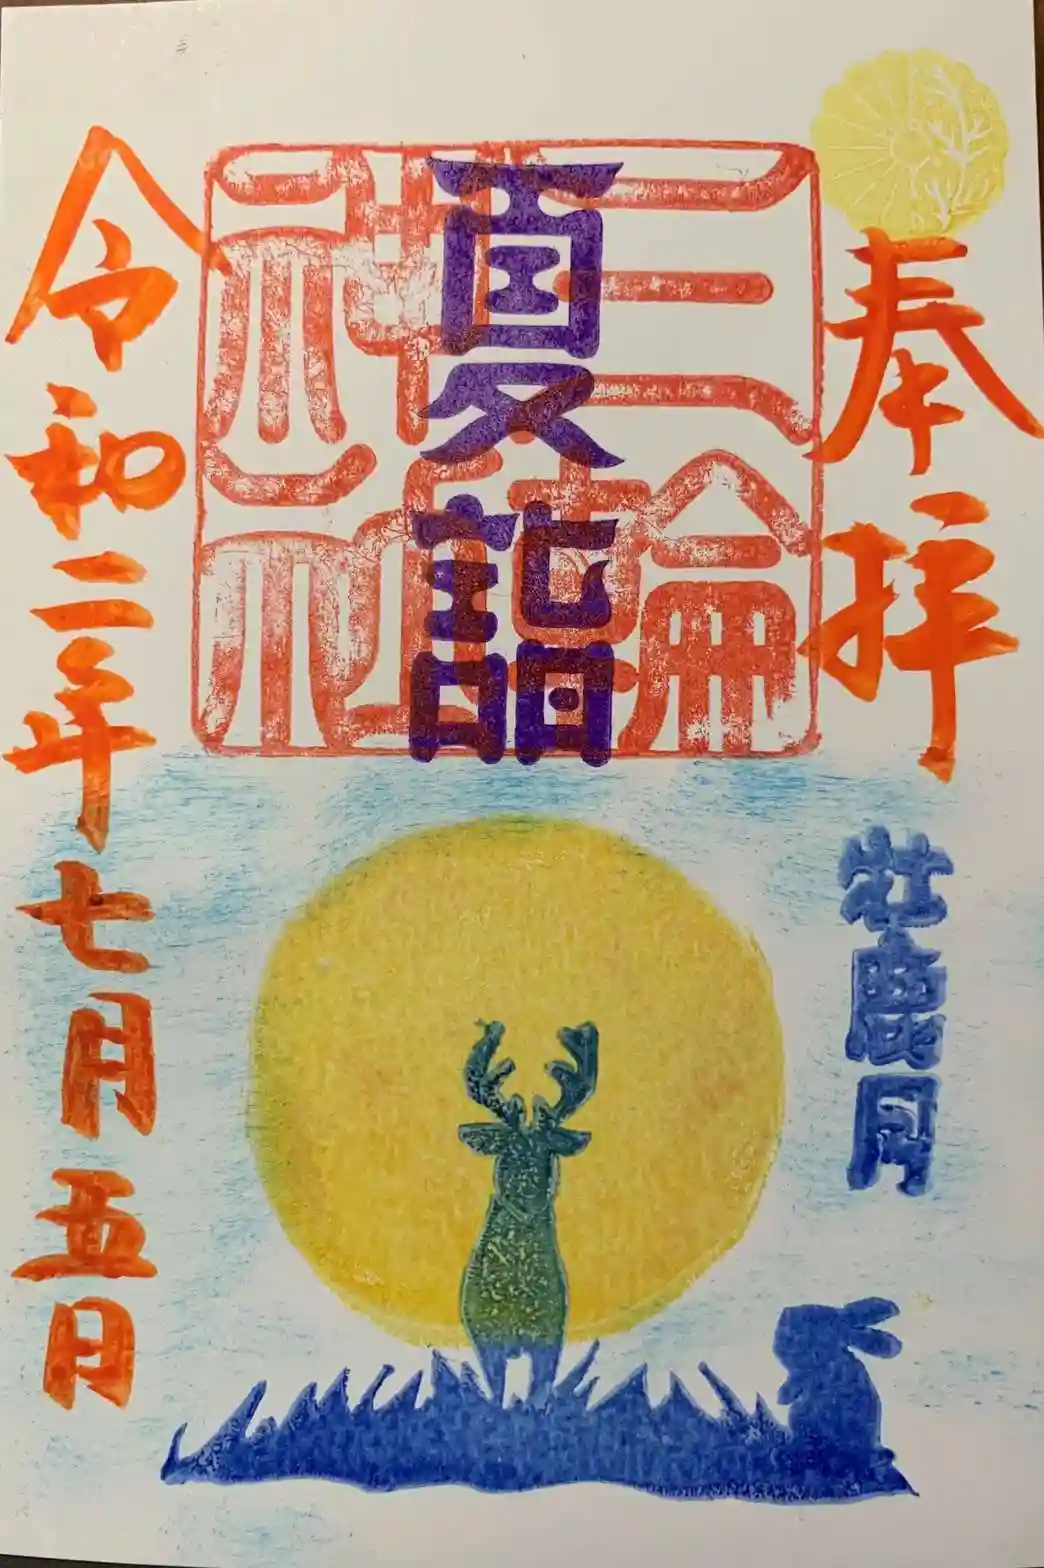 奉拝
牡鹿月
三輪
神社
夏詣
令和二年七月五日